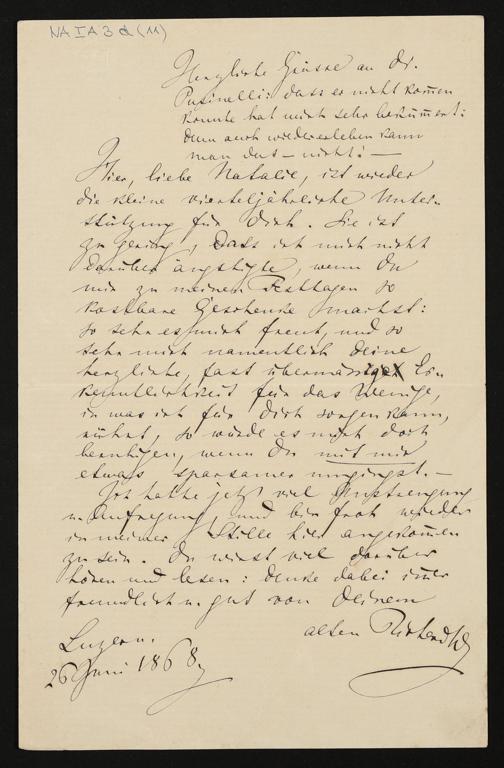 NA I A 3 d (11)
Herzliche Grüsse an Dr.
Pusinelli: dass er nicht kommen
konnte hat mich sehr bekümmert:
denn auch wiedererleben kann
man das – nicht! –
Hier, liebe Natalie, ist wieder
die kleine vierteljährliche Unter-
stützung für Dich. Sie ist
zu gering, dass ich mich nicht
darüber ängstigte, wenn Du
mir zu meinen Festtagen so
kostbare Geschenke machst:
so sehr es mich freut, und so
sehr mich namentlich deine
herzliche, fast übermässige Er-
kenntlichkeit für das Wenige,
in was ich für Dich sorgen kann,
rührt, so würde es mich doch
beruhigen, wenn Du mit mir
etwas sparsamer umgingst. –
Ich hatte jetzt viel Anstrengung
u. Aufregung und bin froh wieder
in meiner Stille hier angekommen
zu sein. Du wirst viel darüber
hören und lesen: denke dabei immer
freundlich u. gut von Deinem
alten Richard W
Luzern.
26 Juni 1868.